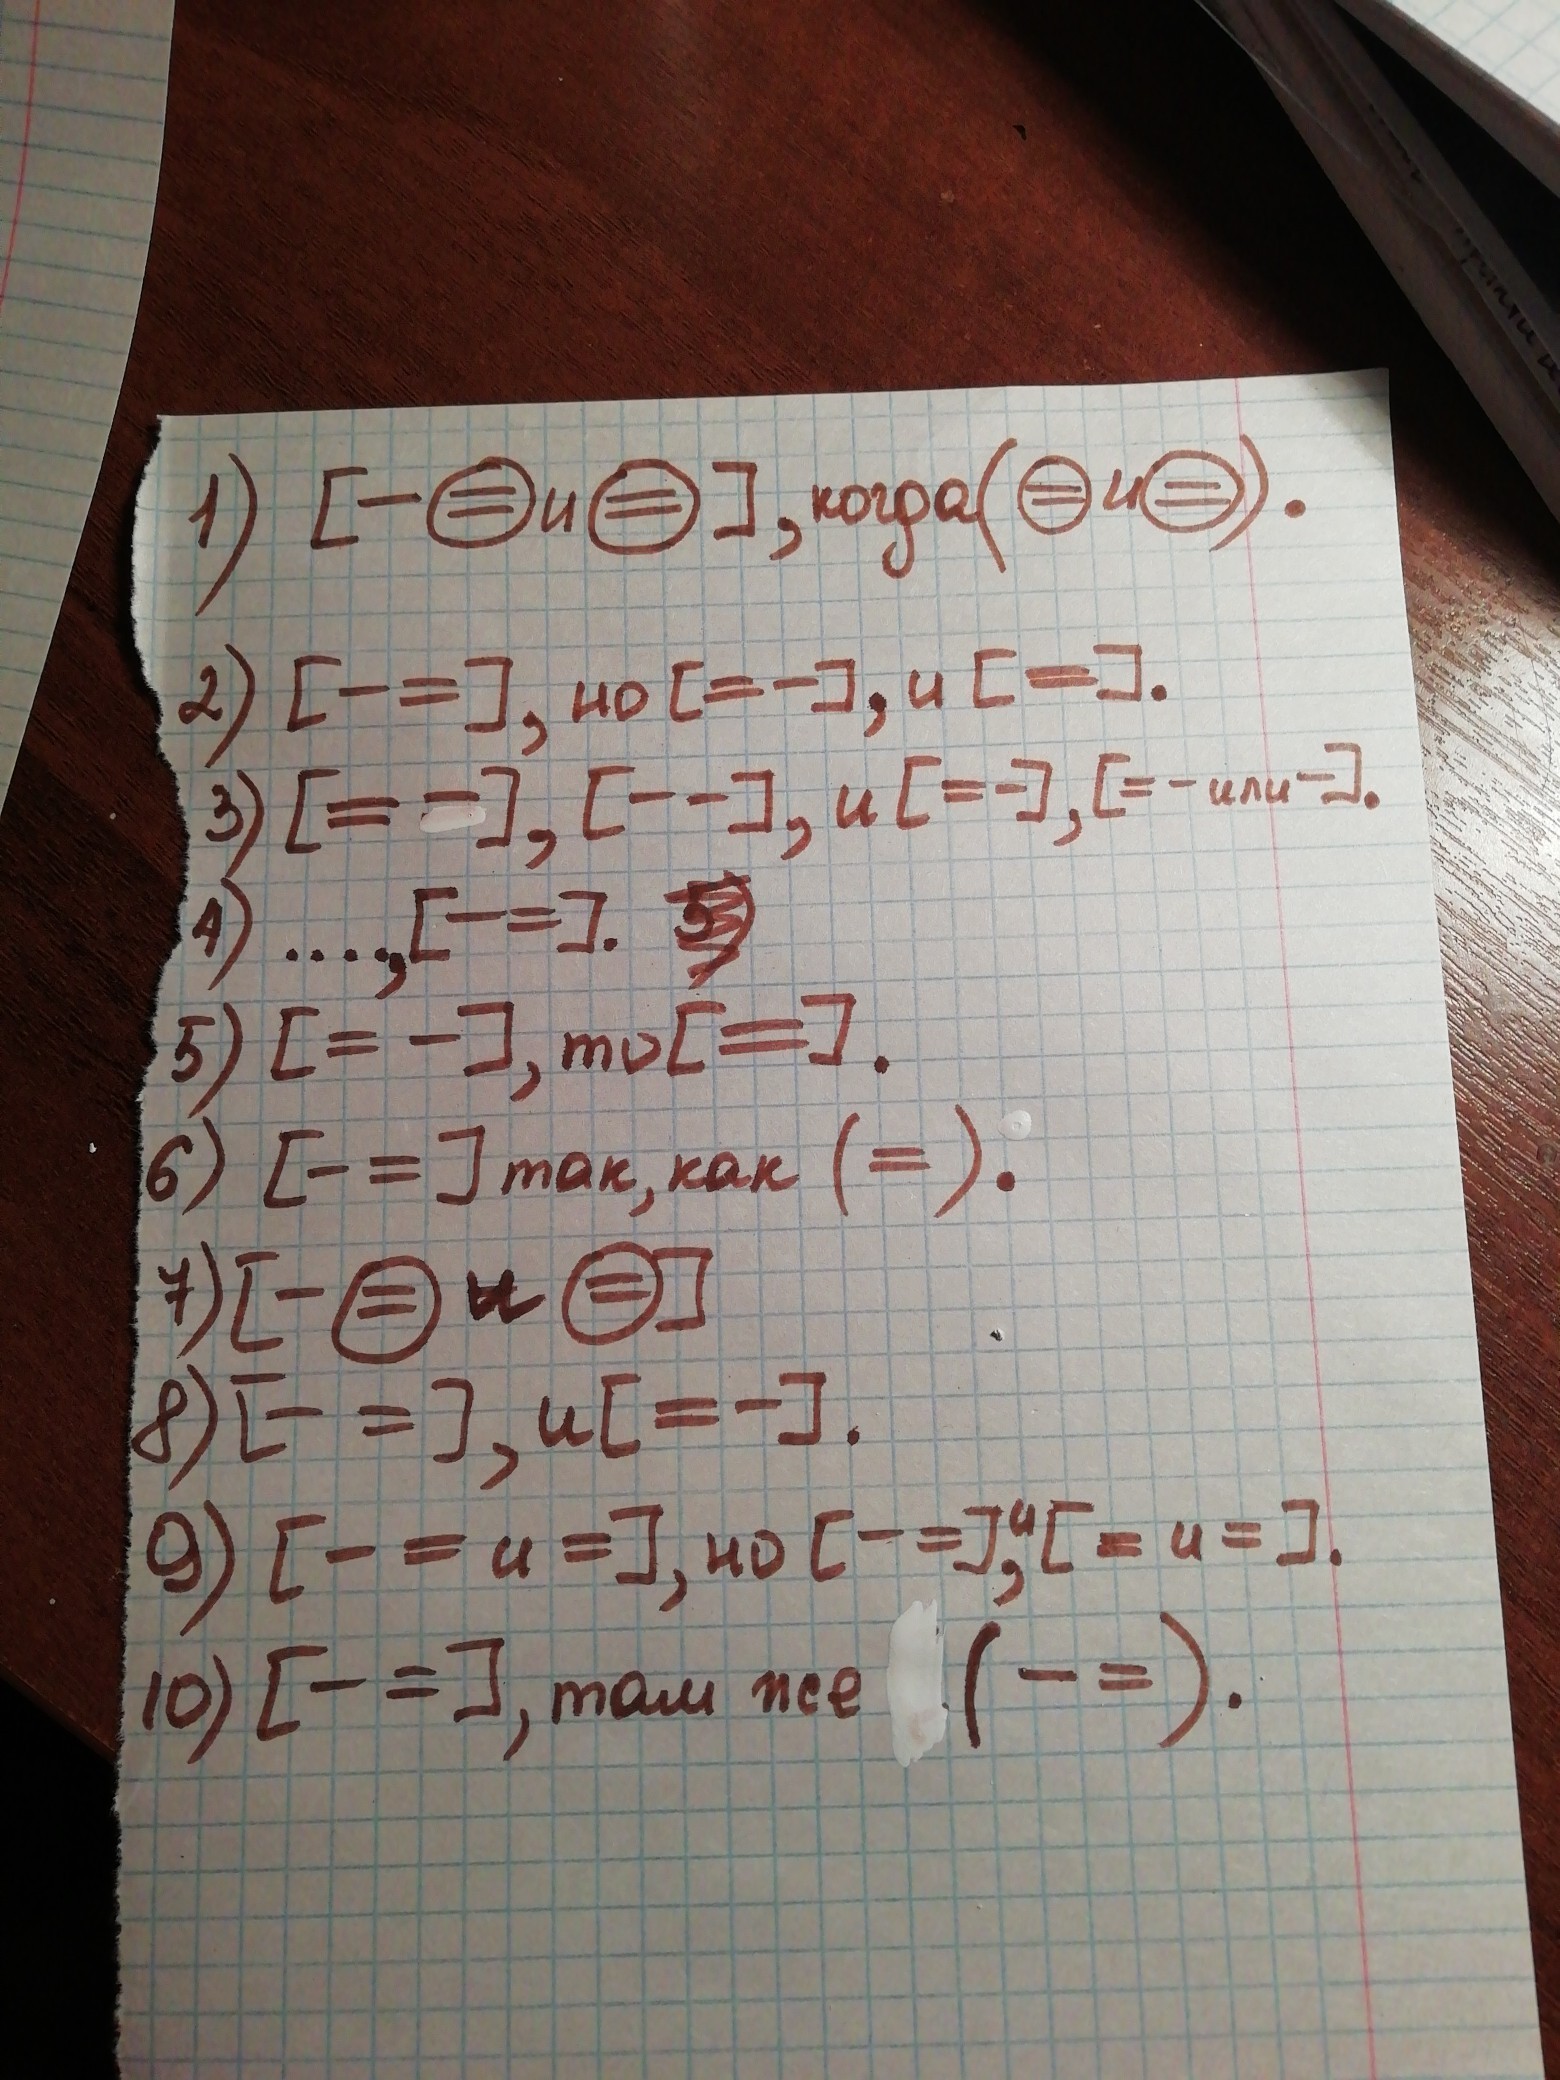 1) [- = и =], когда (= и =).
2) [- =], но [= -], и [=].
3) [= -], [- -], и [= -], [= - или -].
4) ...., [- =].
5) [= -], то [=].
6) [- =] так, как (=).
7) [- = и =]
8) [- =], и [= -].
9) [- = и =], но [- =], и [= и =].
10) [- =], там же (- =).